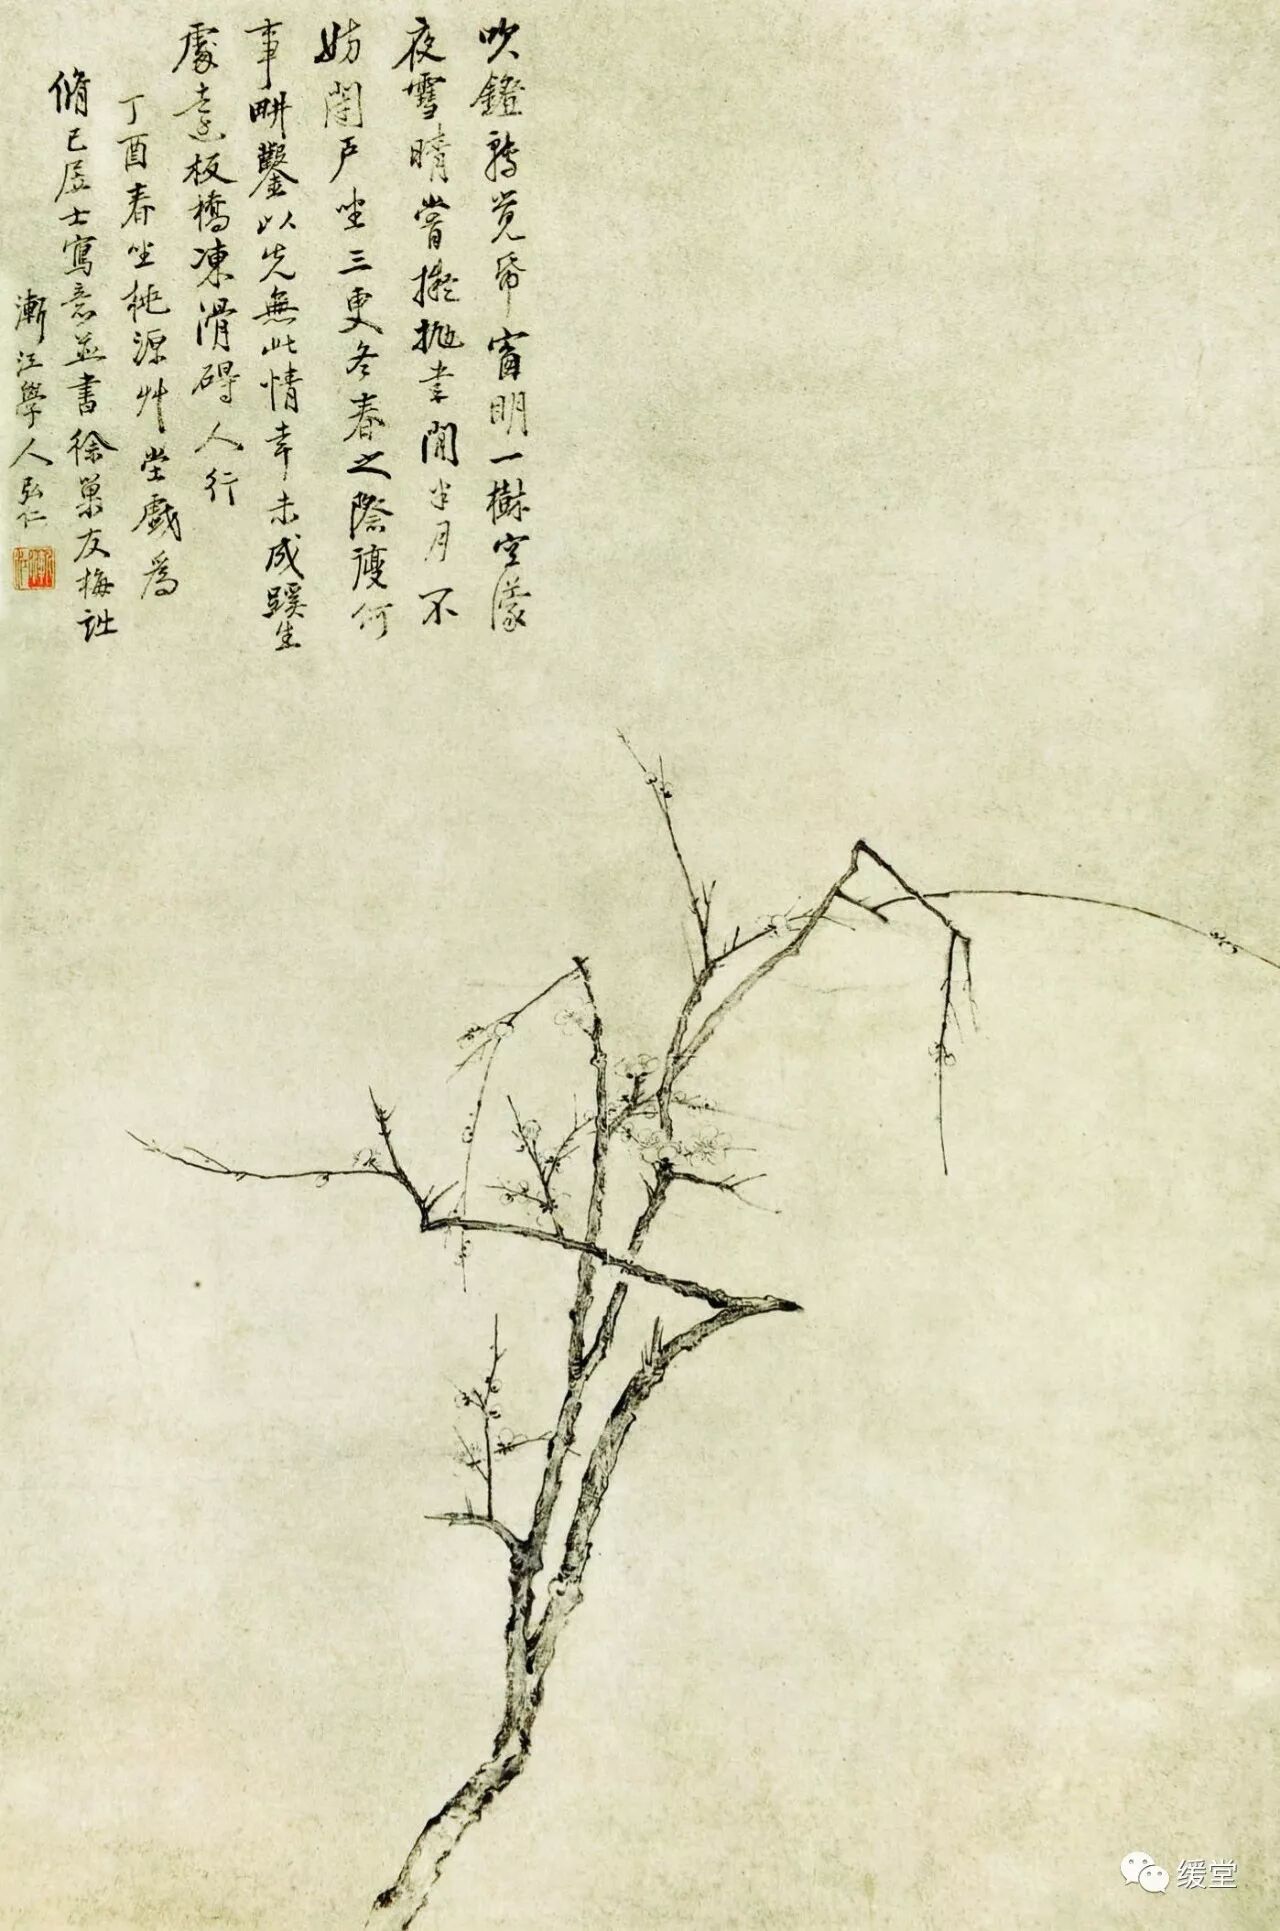 吹鐙轉覺帋窗明一樹空濛
夜雪晴嘗擬抛書閒半月不
妨閉戶坐三更冬春之際何
事畊鑿以先無此情幸未成蹊生
處遠板橋凍滑碍人行
丁酉春坐桃源艸堂戲爲
脩己居士寫意並書徐巢友梅詩
漸江學人弘仁
缓堂